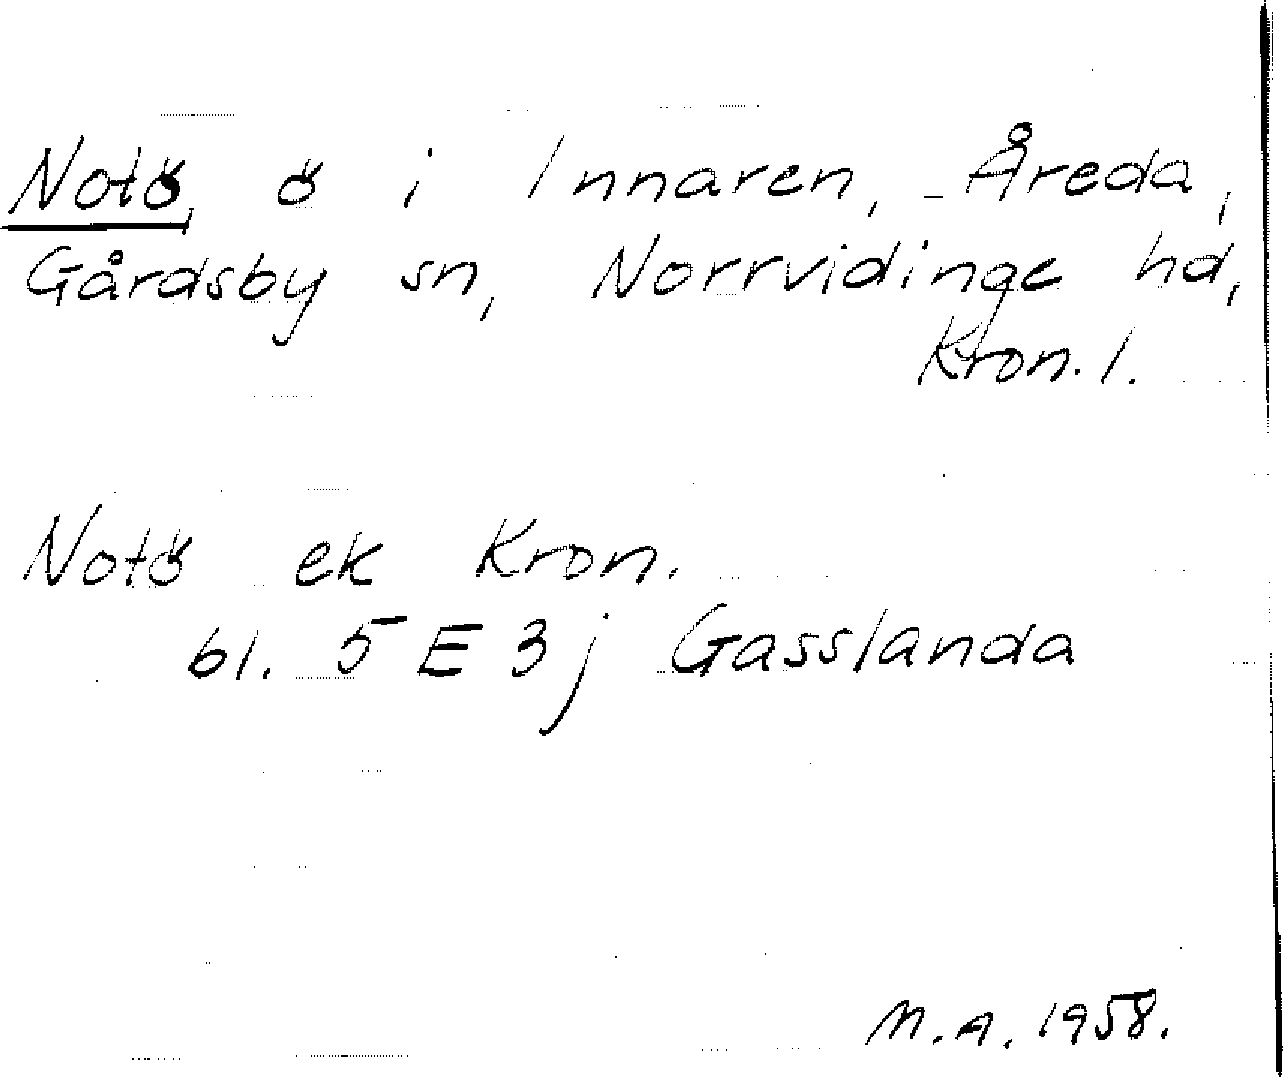 Notö, ö i Innaren, Åreda,
Gårdsby sn, Norrvidinge hd,
Kron. l.
Notö ek Kron.
bl. 5 E 3 j Gasslanda
M.A. 1958.